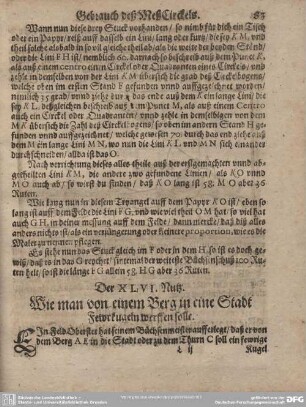 Gebrauch deß MeßCirckels. 83
Wann nun diese drey Stuck vorhanden / so nimb für dich ein Tisch
oder ein Papyr / reiß auff dasselb ein Lini / lang oder kurtz / dieselb KM, vnd
theil solche alsbald in so viel gleiche theil ab / als die weite der beyden Ständ /
oder die Lini FH ist / nemblich 60. darnach so beschreib auß dem Punct K,
als auß einem centro einen Circkel oder Quadranten eines Circkels / vnd
zehle in demselben von der Lini KM
welche oben
nemblich
sey KL. deßgleichen beschreib auß dem Punct M, als auß einem Centro
auch ein Circkel oder Quadranten / vnnd zehle in demselbigen von dem
MK vbersich die Zahl deß Circkelbogens / so oben im andern Stand H ge-
funden vnnd auffgezeichnet / welche gewesen 70. durch das end ziehe auß
dem M ein lange Lini MN, wo nun die Lini KL vnd MN sich einander
durchschneiden / allda ist das O.
Nach verrichtung dieses alles theile auß der erstgemachten vnnd ab-
getheilten Lini KM, die andere zwo gefundene Linien / als KO vnnd
MO auch ab / so wirst du finden / daß KO lang ist 58. MO aber 36
Ruten.
Wie lang nun in diesem Tryangel auff dem Papyr KO ist / eben so
lang ist auff dem Feldt die Lini FG, vnd wie viel theil OM hat / so viel hat
auch GH, in deiner messung auff dem Felde / dann mercke / daß diß alles
anders nichts ist / als ein verjüngerung oder kleinere proportion, wie es
die Maler zu nennen pflegen.
Es stehe nun das Stuck gleich im F oder in dem H, so ist es doch ge-
wiß / daß es in das G reychet / sintemal der weiteste Büchsenschuß 100 Ru-
ten helt / so ist die länge FG allein 58. HG aber 36 Ruten.
Der XLVI. Nutz.
Wie man von einem Berg in eine Stadt
Fewrkugeln werffen solle.
EIn Feld Oberster hat seinem Büchsenmeister aufferlegt / daß er von
dem Berg AE in die Stadt oder zu dem Thurn C soll ein fewrige
L ij Kugel